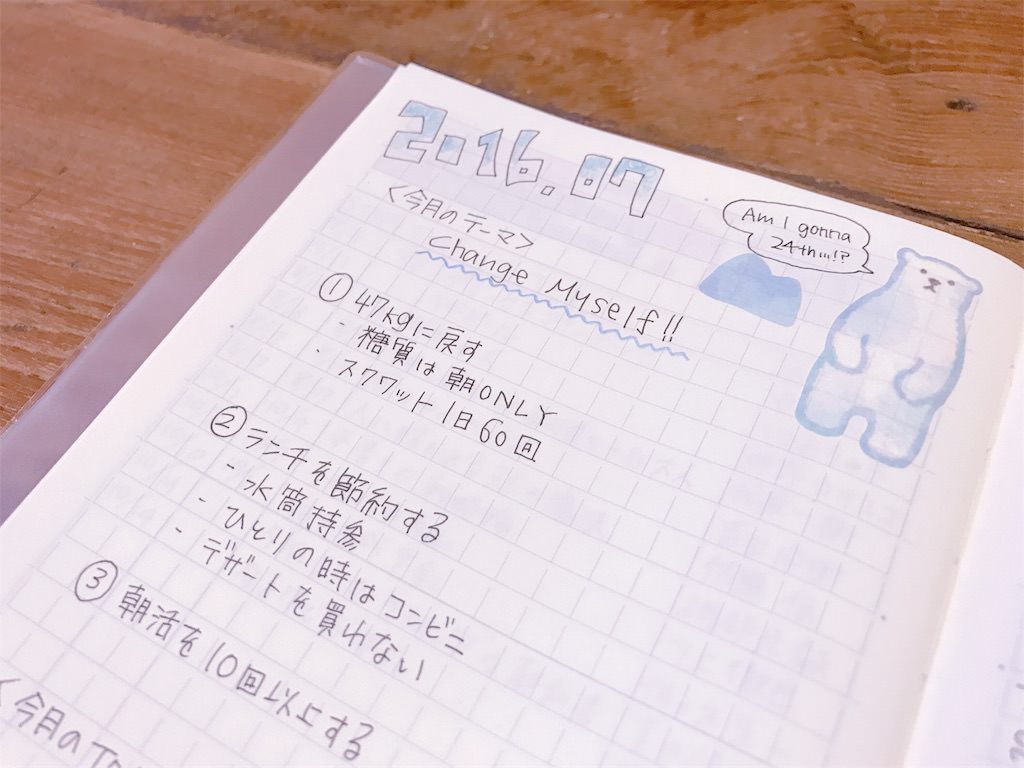 2016.07
<今月のテーマ>
Change Myself!!
Am I gonna
24th...!?
① 47kgに戻す
・糖質は朝ONLY
・スクワット1日60回
② ランチを節約する
- 水筒持参
- ひとりの時はコンビニ
- デザートを買わない
③ 朝活を10回以上する
<今月の